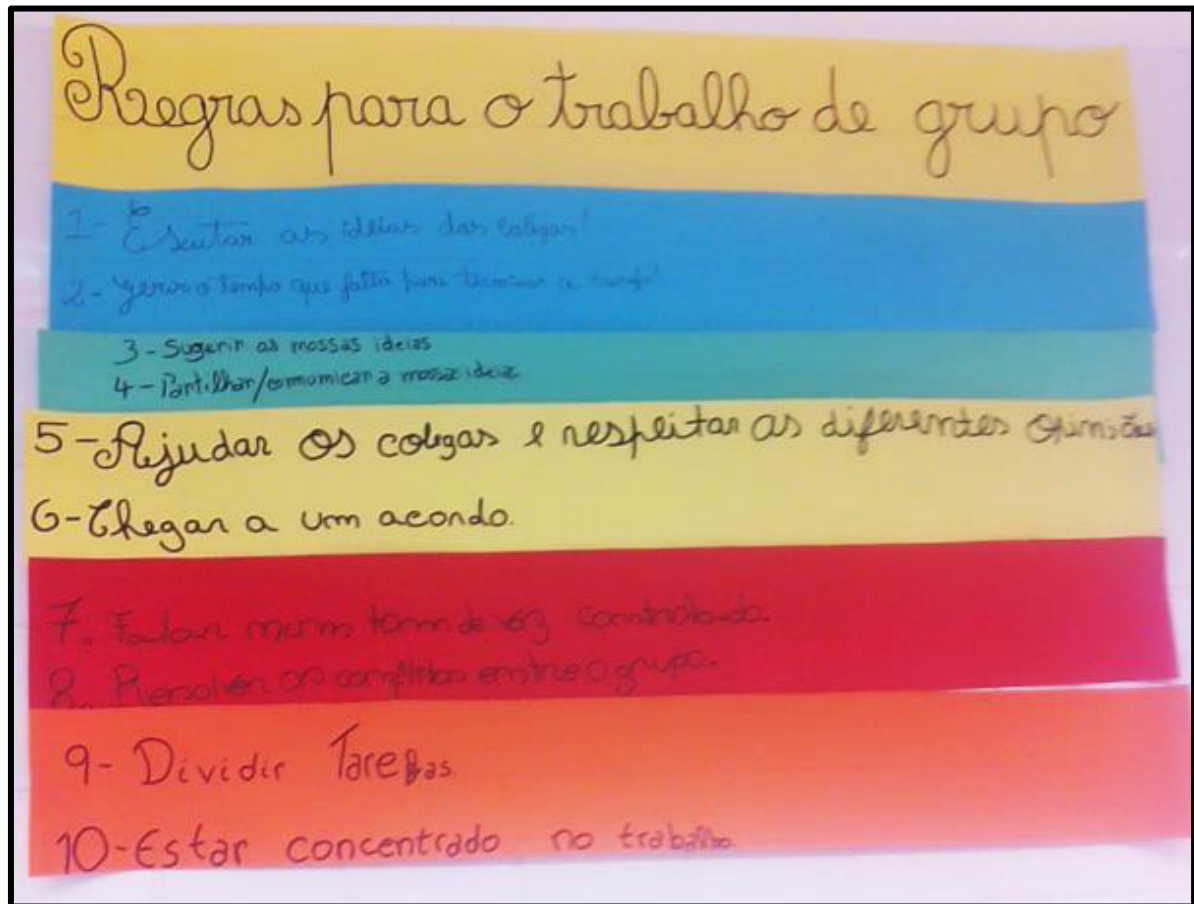 Regras para o trabalho de grupo
1- Escutar as ideias dos colegas!
2- Gerir o tempo que falta para terminar a tarefa!
3 - Sugerir as nossas ideias
4 - Partilhar/comunicar a nossa ideia
5 - Ajudar os colegas e respeitar as diferentes opiniões
6 - Chegar a um acordo.
7. Falar num tom de voz controlado.
8. Resolver os conflitos entre o grupo.
9 - Dividir Tarefas.
10 - Estar concentrado no trabalho.